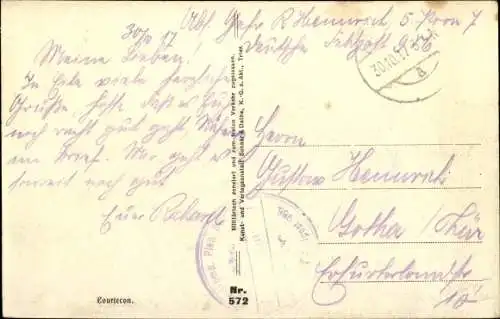 Abs. Gefr R Heinrich 5. Korn 7
Deutsche Feldpost 986
30/10 17
Meine Lieben!
In Eile viele herzliche
Grüße hoffe daß es Euch
noch recht gut geht
im Brief. Mir geht es
soweit noch gut
Euer Richard
Courtecon.
Militärisch zensiert und zum freien Verkehr zugelassen.
Kunst- und Verlagsanstalt Schaar & Dathe, K.-G. a. Akt., Trier.
Nr.
572
30.10.17
a
Herrn
Gustav Heinrich
Gotha / Thür
Erfurterlandstr
10